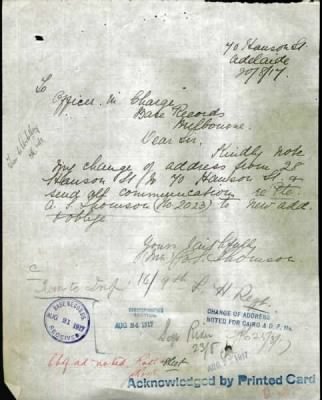 70 Hanson St
Adelaide
20/8/17.
To
Officer in Charge
Base Records
Melbourne.
Dear Sir.
Kindly note
my change of address from 28
Hanson St to 70 Hanson St &
send all communications re Pte
A. J. Thomson (No 2023) to new add
& oblige
Yours Faithfully
Thomson
16/9th L H Regt.
BASE RECORDS
AUG 21 1917
RECEIVED
AUG 24 1917
CHANGE OF ADDRESS
NOTED FOR CARD & D.F. No.
23/8
AUG 1917
Chg. ad. noted,
Acknowledged by Printed Card